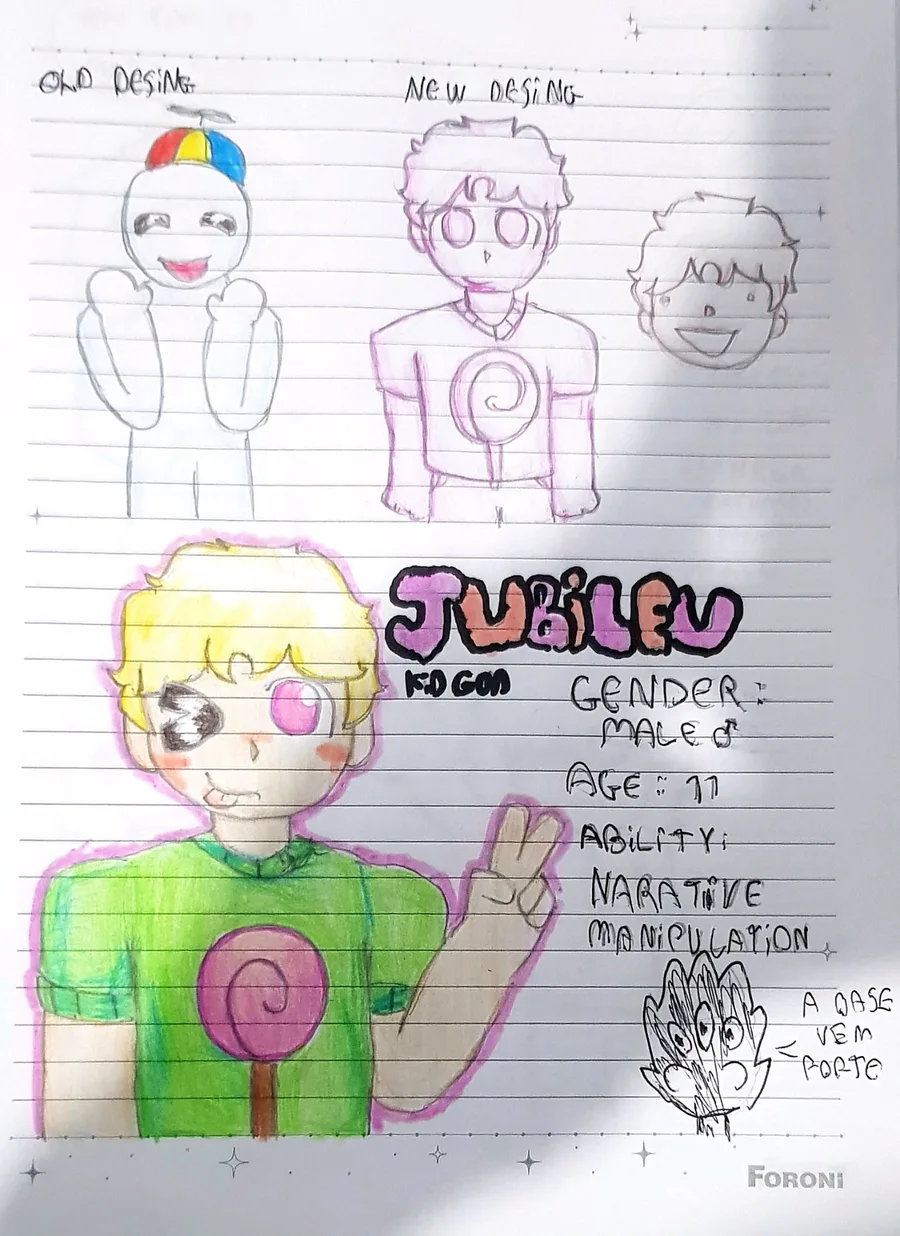 OLD DESING
NEW DESING
JUBiLEU
KiD GOD
GENDER:
MALE ♂
AGE: 11
ABiLiTY:
NARATiVE
MANiPULATiON
A BASE
VEM
FORTE
FORONI